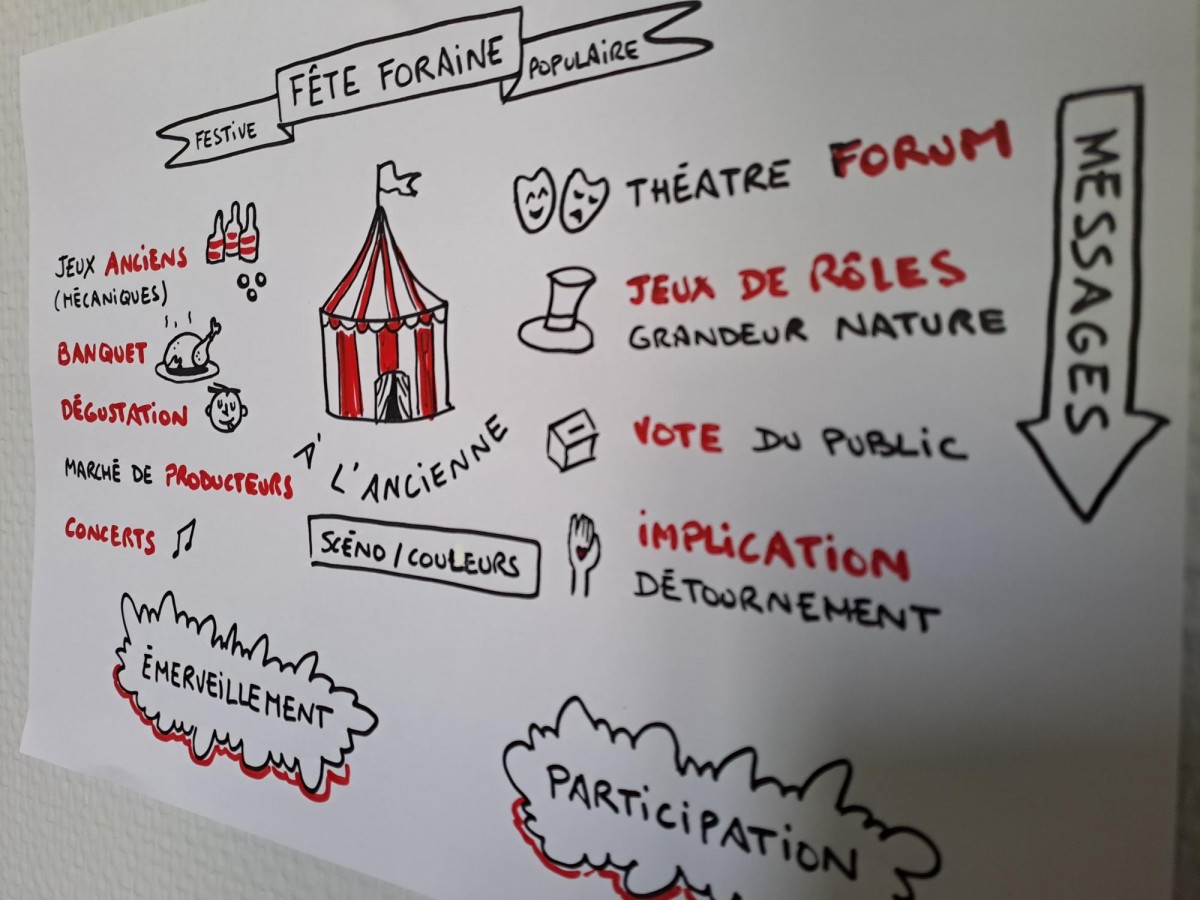 FESTIVE
FÊTE FORAINE
POPULAIRE
JEUX ANCIENS
(MÉCANIQUES)
BANQUET
DÉGUSTATION
MARCHÉ DE PRODUCTEURS
CONCERTS
À L'ANCIENNE
SCÉNO/COULEURS
THÉATRE FORUM
JEUX DE RÔLES
GRANDEUR NATURE
VOTE DU PUBLIC
IMPLICATION
DÉTOURNEMENT
MESSAGES
ÉMERVEILLEMENT
PARTICIPATION